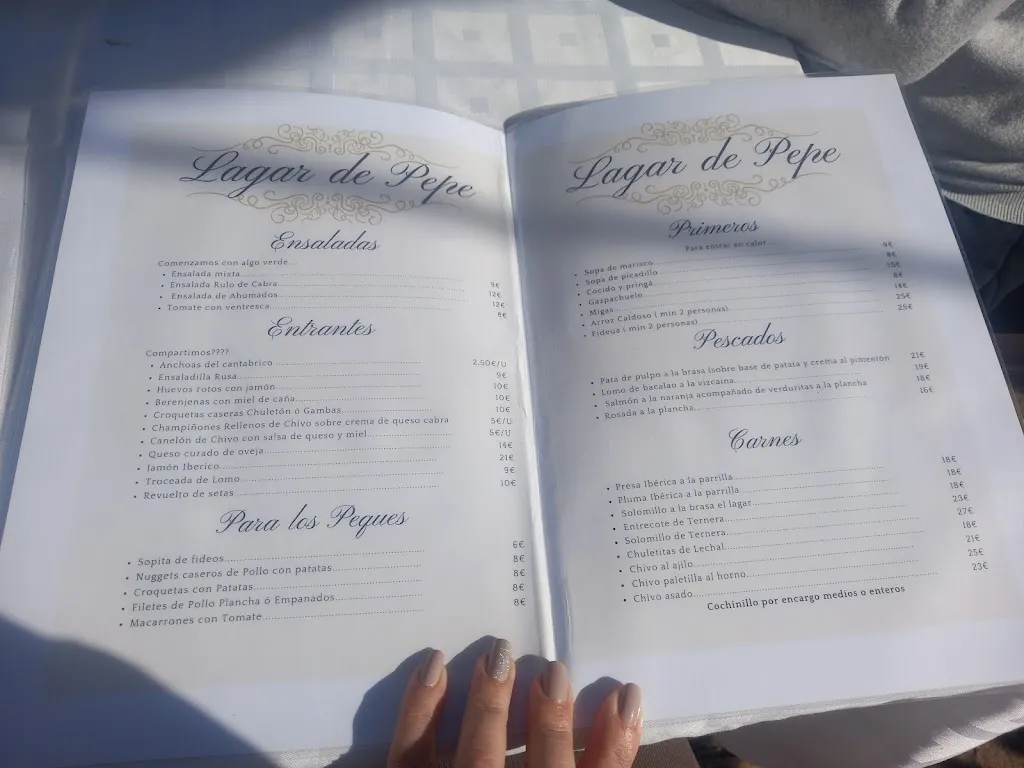 Lagar de Pepe
Ensaladas
Comenzamos con algo verde...
• Ensalada mixta 9€
• Ensalada Rulo de Cabra 12€
• Ensalada de Ahumados 12€
• Tomate con ventresca 8€
Entrantes
Compartimos????
• Anchoas del cantabrico 2.50€/U
• Ensaladilla Rusa 9€
• Huevos rotos con jamón 10€
• Berenjenas con miel de caña 10€
• Croquetas caseras Chuletón ó Gambas 10€
• Champiñones Rellenos de Chivo sobre crema de queso cabra 5€/U
• Canelón de Chivo con salsa de queso y miel 5€/U
• Queso curado de oveja 14€
• Jamón Iberico 21€
• Troceada de Lomo 9€
• Revuelto de setas 10€
Para los Peques
• Sopita de fideos 6€
• Nuggets caseros de Pollo con patatas 8€
• Croquetas con Patatas 8€
• Filetes de Pollo Plancha ó Empanados 8€
• Macarrones con Tomate 8€
Lagar de Pepe
Primeros
Para entrar en calor...
• Sopa de marisco 9€
• Sopa de picadillo 8€
• Cocido y pringá 15€
• Gazpachuelo 8€
• Migas 14€
• Arroz Caldoso ( min 2 personas) 25€
• Fideua ( min 2 personas) 25€
Pescados
• Pata de pulpo a la brasa (sobre base de patata y crema al pimentón 21€
• Lomo de bacalao a la vizcaina 19€
• Salmón a la naranja acompañado de verduritas a la plancha 18€
• Rosada a la plancha 16€
Carnes
• Presa Ibérica a la parrilla 18€
• Pluma Ibérica a la parrilla 18€
• Solomillo a la brasa el lagar 18€
• Entrecote de Ternera 23€
• Solomillo de Ternera 27€
• Chuletitas de Lechal 18€
• Chivo al ajilo 21€
• Chivo paletilla al horno 25€
• Chivo asado 23€
Cochinillo por encargo medios o enteros